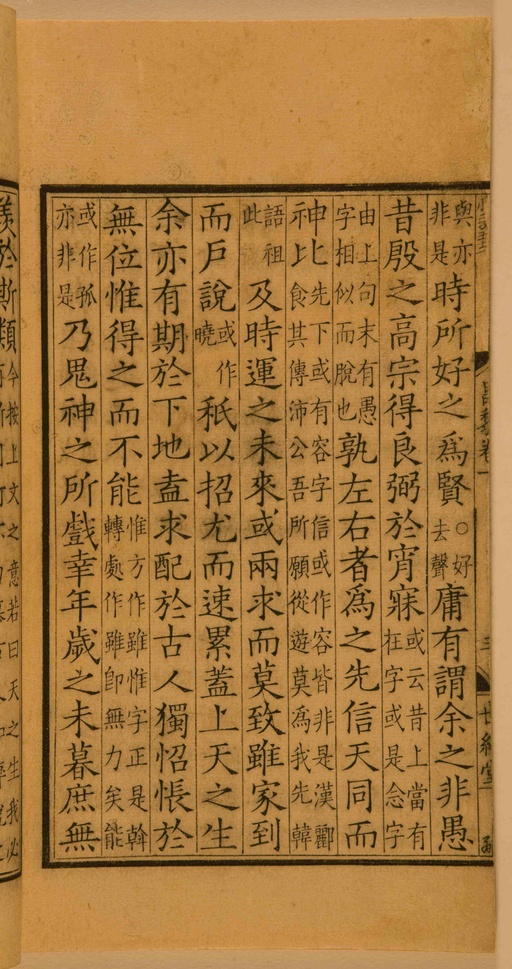 與亦非是時所好之爲賢○好去聲庸有謂余之非愚
昔殷之高宗得良弼於宵寐或云昔上當有枉字或是念字
由上句末有愚字相似而脫也孰左右者爲之先信天同而
神比先下或有容字信或作容皆非是漢酈食其傳沛公吾所願從遊莫爲我先韓
語祖此及時運之未來或兩求而莫致雖家到
而戶說或作曉秖以招尤而速累蓋上天之生
余亦有期於下地盍求配於古人獨怊悵於
無位惟得之而不能惟方作雖惟字正是斡轉處作雖即無力矣能
或作孤亦非是乃鬼神之所戲幸年歲之未暮庶無
羨於斯類今按上文之意若曰天之生我必
昌黎卷一
三
世綵堂